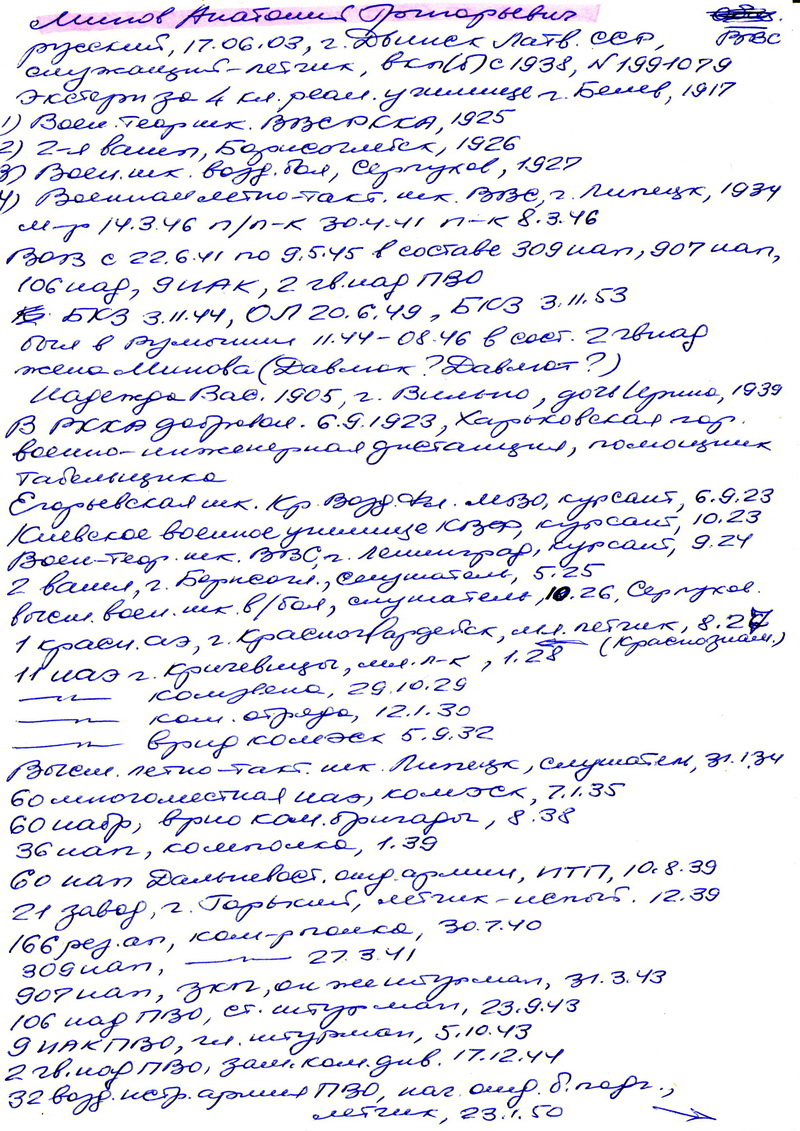 Минов Анатолий Григорьевич
русский, 17.06.03, г. Двинск Латв. ССР, ВВС
служащий-летчик, вкп(б) с 1938, N 1991079
Экстерн за 4 кл. реал. училище г. Белев, 1917
1) Воен. теор. шк. ВВС РККА, 1925
2) 2-я вашл, Борисоглебск, 1926
3) Воен. шк. возд. боя, Серпухов, 1927
4) Военная летно-такт. шк. ВВС, г. Липецк, 1934
м-р 14.3.46 п/п-к 30.4.41 п-к 8.3.46
ВОВ с 22.6.41 по 9.5.45 в составе 309 иап, 907 иап,
106 иад, 9 ИАК, 2 гв. иад ПВО
БКЗ 3.11.44, ОЛ 20.6.49, БКЗ 3.11.53
был в Румынии 11.44-08.46 в сост. 2 гвиад
жена Минова (Давлюк? Давлют?)
Надежда Вас. 1905, г. Вильно, дочь Ирина, 1939
В РККА добровол. 6.9.1923, Харьковская гор.
военно-инженерная дистанция, помощник
табельщика
Егорьевская шк. Кр. Возд. Фл. МВО, курсант, 6.9.23
Киевское военное училище КВФ, курсант, 10.23
Воен-теор. шк. ВВС, г. Ленинград, курсант, 9.24
2 вашл, г. Борисогл., слушатель, 5.25
высш. воен. шк. в/боя, слушатель, 10.26, Серпухов.
1 красн. аэ, г. Красногвардейск, мл. летчик, 8.27
(Краснознам.)
11 иаэ г. Кричевицы, мл. л-к, 1.28
—"— комзвена, 29.10.29
—"— ком. отряда, 12.1.30
—"— врид комэск 5.9.32
Высш. летно-такт. шк. Липецк, слушатель, 31.1.34
60 многоместная иаэ, комэск, 7.1.35
60 иабр, врио ком. бригады, 8.38
36 иап, комполка, 1.39
60 иап Дальневост. отд. армии, ИТП, 10.8.39
21 завод, г. Горький, летчик-испыт. 12.39
166 рез. ап, ком-р полка, 30.7.40
309 иап, —"— 27.3.41
907 иап, ЗКП, он же штурман, 31.3.43
106 иад ПВО, ст. штурман, 23.9.43
9 ИАК ПВО, гл. штурман, 5.10.43
2 гв. иад ПВО, зам. ком. див. 17.12.44
32 возд. истр. армия ПВО, нач. отд. б. подг.,
летчик, 23.1.50 →